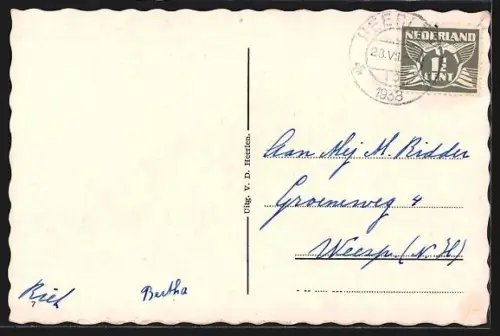 HEERLEN
23.VII
1938
NEDERLAND
1½
CENT
Aan Mej M. Ridder
Groeneweg 4
Weesp (N.H)
Uitg. V. D. Heerlen.
Riet Bertha
7